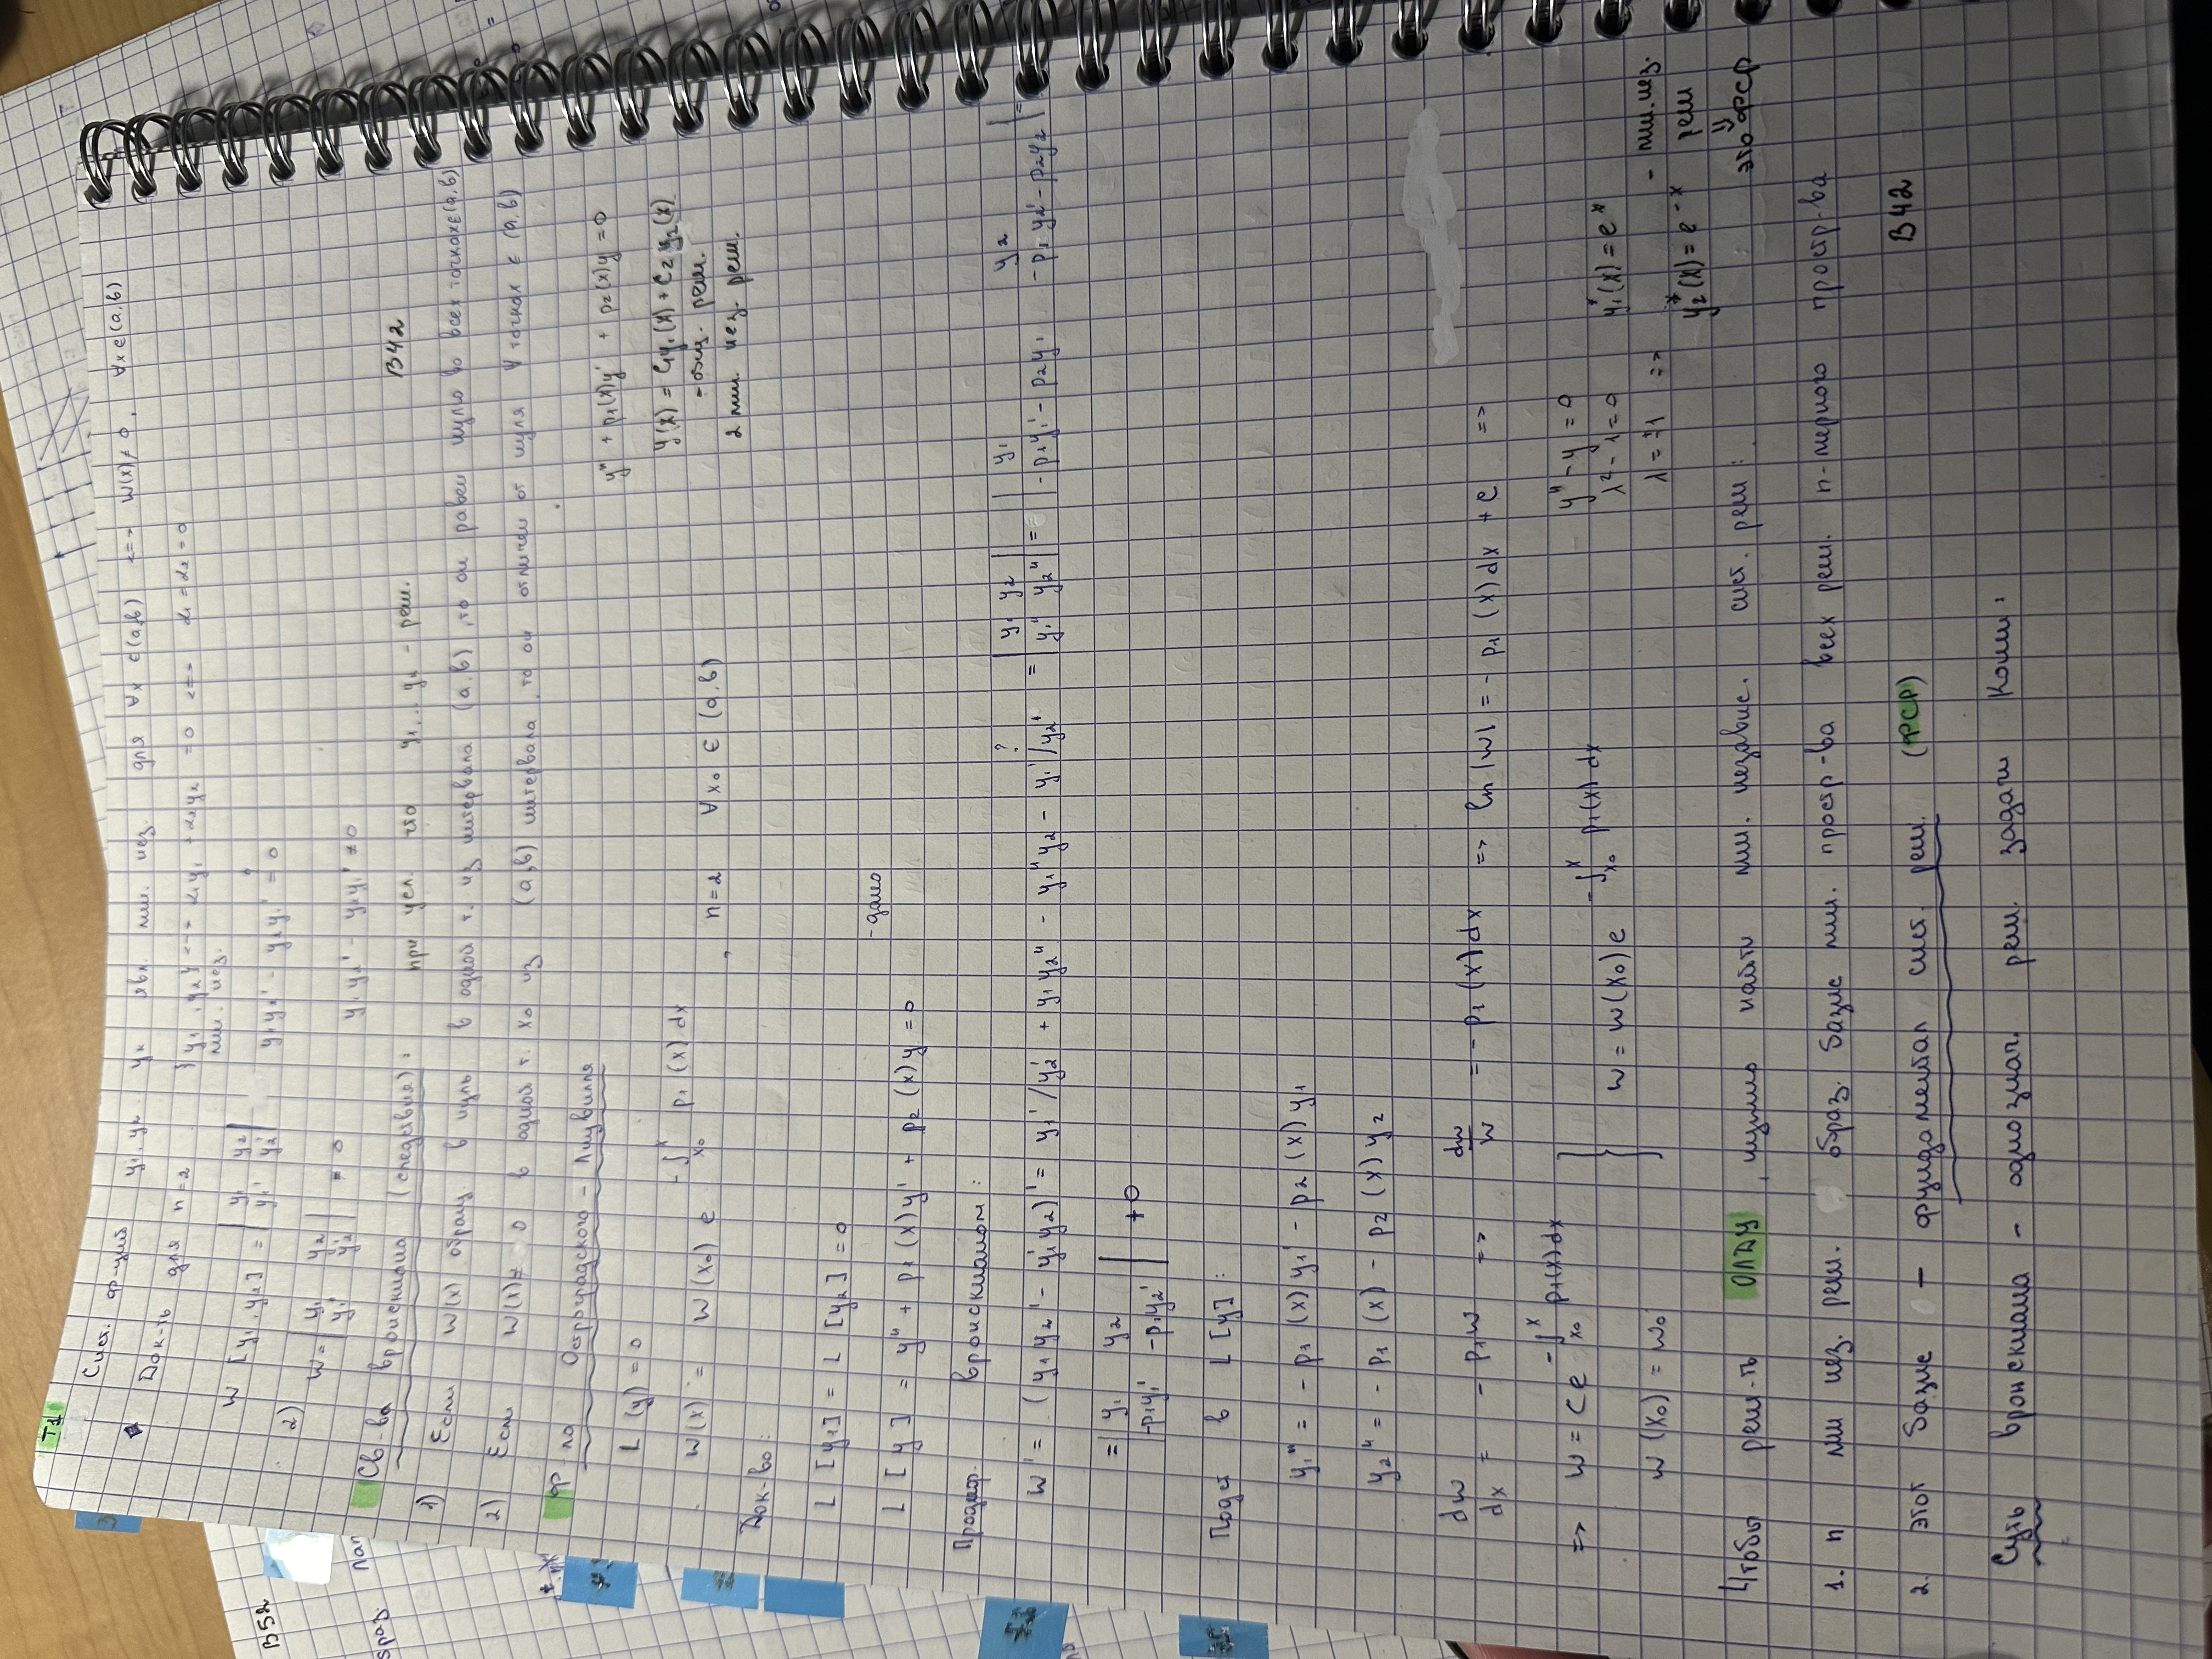 T1
Сист. ф-ций y₁, y₂ .. yₙ явл. лин. нез. для ∀x ∈(a,b) <=> W(x)≠0, ∀x∈(a,b)
Док-ть для n=2 {y₁, y₂} <=> α₁y₁ + α₂y₂ = 0 <=> α₁ = α₂ = 0
лин. нез.
W [y₁, y₂] = | y₁ y₂ | y₁y₂' - y₂y₁' = 0
| y₁' y₂' |
2) W = | y₁ y₂ | = 0 y₁y₂' - y₂y₁' ≠ 0
| y₁' y₂' |
B52
Св-ва вронскиана (следствия): при усл. что y₁...yₙ - реш. B42
1) Если W(x) обращ в нуль в одной т. из интервала (a,b), то он равен нулю во всех точках∈(a,b)
2) Если W(x)≠ 0 в одной т. x₀ из (a,b) интервала, то он отличен от нуля ∀ точках ∈ (a,b)
Ф ла Остроградского - Лиувилля
L (y) = 0
y'' + p₁(x)y' + p₂(x)y = 0
y(x) = C₁y₁(x) + C₂y₂(x)
- общ. реш.
2 лин. нез. реш.
W(x) = W(x₀) e^{-∫_{x₀}^{x} p₁(x) dx}, n=2 ∀x₀ ∈ (a,b)
Док-во:
L [y₁] = L [y₂] = 0
L [y] = y'' + p₁(x)y' + p₂(x)y = 0 - дано
Продиф. вронскианом:
W' = (y₁y₂' - y₁'y₂)' = y₁'/y₂' + y₁y₂'' - y₁''y₂ - y₁'/y₂' ? = | y₁ y₂ | = | y₁ y₂ | =
| y₁'' y₂'' | | -p₁y₁' - p₂y₁ -p₁y₂' - p₂y₂ |
= | y₁ y₂ | + 0
| -p₁y₁' -p₁y₂' |
Подст в L [y]:
y₁'' = - p₁(x) y₁' - p₂(x) y₁
y₂'' = - p₁(x) - p₂(x) y₂
dw/dx = - p₁w => dw/w = - p₁(x) dx => ln |w| = - p₁(x) dx + c =>
=> w = c e^{-∫_{x₀}^{x} p₁(x) dx} } w = w(x₀) e^{-∫_{x₀}^{x} p₁(x) dx}
w(x₀) = w₀
y'' - y = 0
λ² - 1 = 0 y₁*(x) = eˣ
λ = ±1 => - лин. нез.
y₂*(x) = e⁻ˣ реш
⇓
это ФСР
Чтобы реш-ть ОЛДУ, нужно найти лин. независ. сист. реш:
1. n лин нез. реш. образ. базис лин. простр-ва всех реш. n-мерного простр-ва
2. этот базис - фундаментал сист. реш. (ФСР) B42
Суть вронскиана - однознач. реш. задачи Коши: